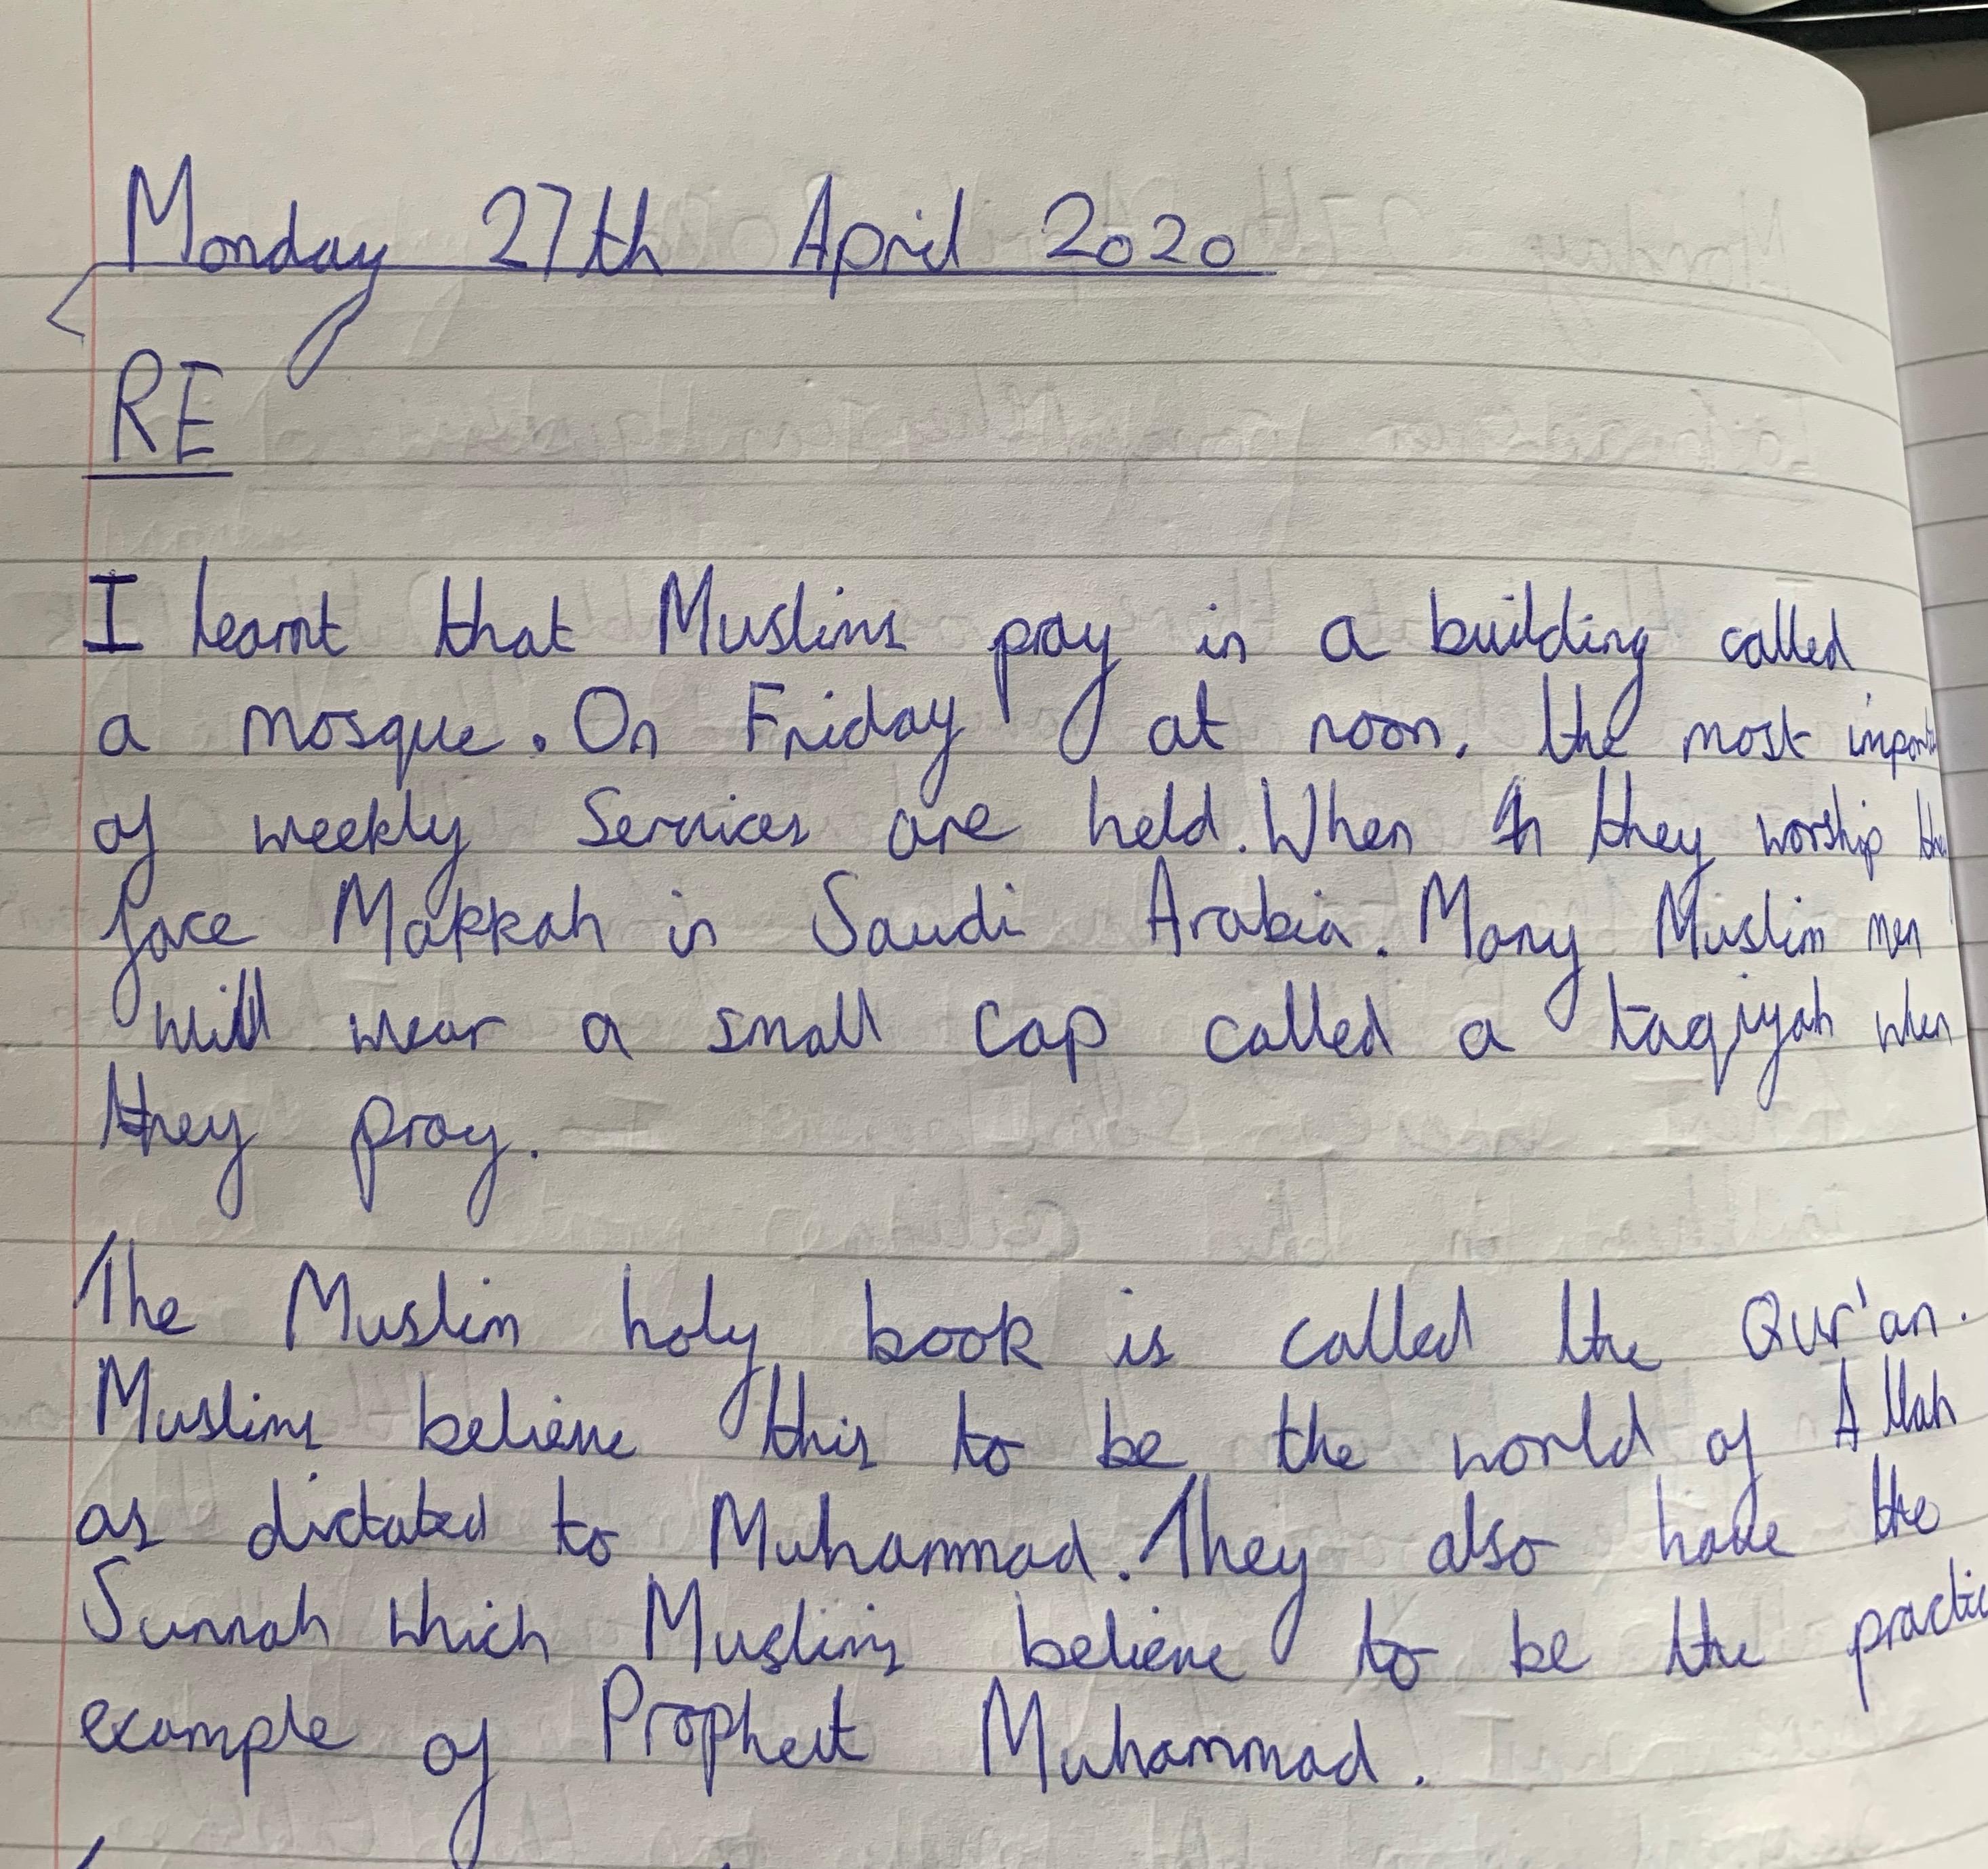 Monday 27th April 2020
RE
I learnt that Muslims pray in a building called
a mosque. On Friday at noon, the most
of weekly Services are held. When they worship
face Makkah in Saudi Arabia. Many Muslim men
will wear a small cap called a taqiyah when
they pray.
The Muslim holy book is called the Qur'an.
Muslims believe this to be the world of Allah
as dictated to Muhammad. They also have the
Sunnah which Muslims believe to be the
example of Prophect Muhammad.